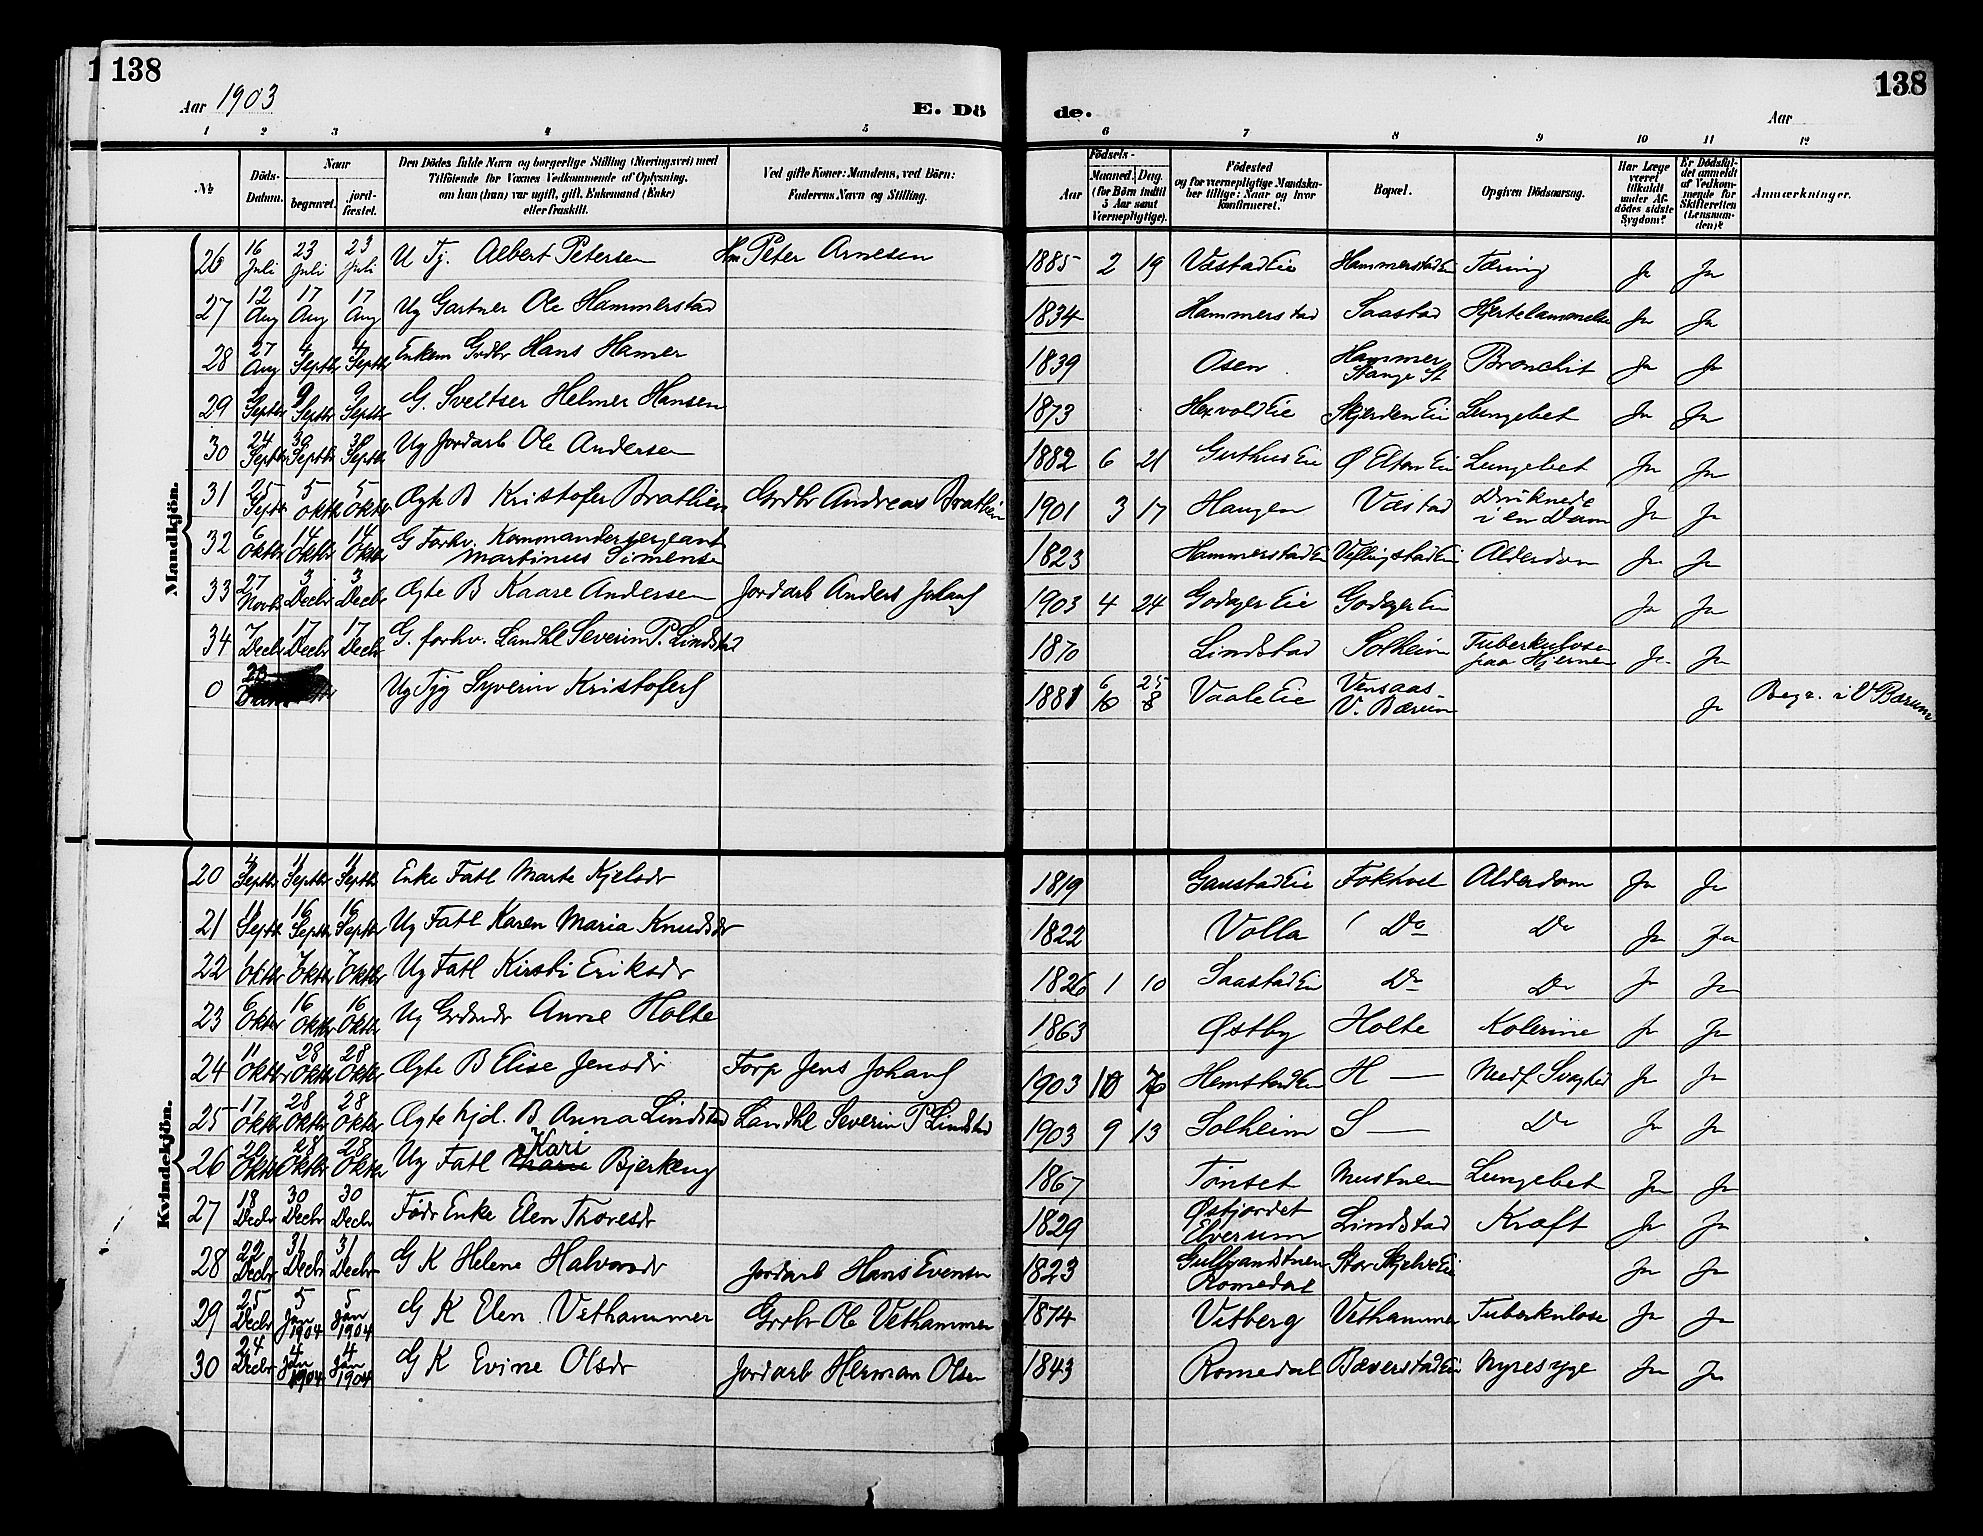 138
138
Aar 1903
E. Dö
de.
Aar
1 2 3 4 5 6 7 8 9 10 11 12
№
Döds-Datum.
Naar
begravet.
jord-fæstet.
Den Dödes fulde Navn og borgerlige Stilling (Næringsvei) med
Tilföiende for Voxnes Vedkommende af Oplysning,
om han (hun) var ugift, gift, Enkemand (Enke)
eller fraskilt.
Ved gifte Koner: Mandens, ved Börn:
Faderens Navn og Stilling.
Födsels-
Aar
Maaned. Dag.
(for Börn indtil
5 Aar samt
Værnepligtige).
Födested
og for værnepligtige Mandska-
ber tillige: Naar og hvor
konfirmeret.
Bopæl.
Opgiven Dödsaarsag.
Har Læge
været
tilkaldt
under Af-
dödes sidste
Sygdom?
Er Dödsfal-
det anmeldt
af Vedkom-
mende for
Skifteretten
(Lensman-
den)?
Anmærkninger.
Mandkjön.
26 16 Juli 23 Juli 23 Juli U Tj. Albert Petersen Hm Peter Arnesen 1885 2 19 Væstad Eie Hammerstad Ei Tæring Ja Ja
27 12 Aug 17 Aug 17 Aug Ug Gartner Ole Hammerstad 1834 Hammerstad Saastad Hjertelammelse Ja Ja
28 27 Aug 4 Septbr 4 Septbr Enkem Grdbr Hans Hamer 1839 Osen Hammer Stange St Bronchit Ja Ja
29 Septbr 9 Septbr 9 Septbr G. Sveitser Helmer Hansen 1873 Hexvold Eie Skjerden Eie Lungebet Ja Ja
30 24 Septbr 30 Septbr 30 Septbr Ug Jordarb Ole Andersen 1882 6 21 Guthus Eie Ø Elton Eie Lungebet Ja Ja
31 25 Septr 5 Oktbr 5 Oktbr Ægte B Kristofer Brathien Grdbr Andreas Brathien 1901 3 17 Haugen Væstad Druknede i en Dam Ja Ja
32 6 Oktbr 14 Oktbr 14 Oktbr G Forhv. Kommandersergeant Martinus Simensen 1823 Hammerstad Ei Vellingstad Ei Alderdom Ja Ja
33 27 Novbr 3 Decbr 3 Decbr Ægte B Kaare Andersen Jordarb Anders Johans 1903 4 24 Godager Eie Godager Ei Ja Ja
34 7 Decbr 17 Decbr 17 Decbr G. forhv. Landhl Severin P. Lindstad 1870 Lindstad Solheim Tuberkulose paa Hjernen Ja Ja
0 28 Ug Tjg Syverin Kristofers 1881 6 25 8 Vaale Eie Vensaas V. Bærum Ja Begr. i V Bærum
Kvindekjön.
20 4 Septbr 11 Septbr 11 Septbr Enke Fatl Marte Kjelsdr 1819 Gaustad Eie Fokhol Alderdom Ja Ja
21 11 Septb 16 Septbr 16 Septbr Ug Fatl Karen Maria Knudsdr 1822 Volla Do Do Ja Ja
22 1 Oktbr 7 Oktbr 7 Oktbr Ug Fatl Kirsti Eriksdr 1826 1 10 Saastad Ei Do Do Ja Ja
23 6 Oktbr 16 Oktbr 16 Oktbr Ug Grdmdr Anne Holte 1863 Østby Holte Kolerine Ja Ja
24 11 Oktbr 28 Oktbr 28 Oktbr Ægte B Elise Jensdr Forp Jens Johans 1903 10 Hemstad Ei H — Medf Svaghed Ja Ja
25 17 Oktbr 28 Oktbr 28 Oktbr Ægte hjd. B Anna Lindstad Landhl Severin P Lindstad 1903 9 13 Solheim S — Do Ja Ja
26 20 Oktbr 28 Oktbr 28 Oktbr Ug Fatl Marie Kari Bjerkeng 1867 Tønset Mustuen Lungebet Ja Ja
27 18 Decbr 30 Decbr 30 Decbr Fødr Enke Elen Thoresdr 1829 Østfjordet Elverum Lindstad Kræft Ja Ja
28 22 Decbr 31 Decbr 31 Decbr G K Helene Halvorsdr Jordarb Hans Evensen 1823 Romedal Stor Skjelve Ei Ja Ja
29 25 Decbr 5 Jan 1904 5 Jan 1904 G K Elen Vethammer Grdbr Ole Vethammer 1874 Vitberg Vethammer Tuberkulose Ja Ja
30 24 Decbr 4 Jan 1904 4 Jan 1904 G K Evine Olsdr Jordarb Herman Olsen 1843 Romedal Bæverstad Ei Nyresyge Ja Ja